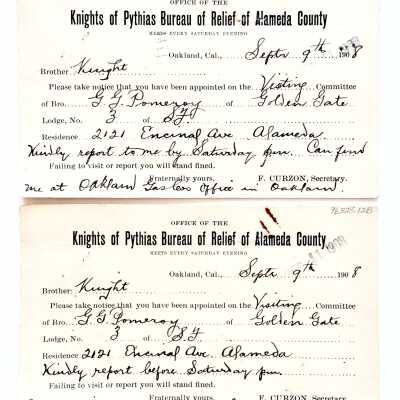 OFFICE OF THE
Knights of Pythias Bureau of Relief of Alameda County
MEETS EVERY SATURDAY EVENING
Oakland, Cal., Septr 9th 1908
Brother Knight
Please take notice that you have been appointed on the Visiting Committee
of Bro. G. G. Pomeroy of Golden Gate
Lodge, No. 3 of S.F.
Residence 2121 Encinal Ave Alameda
Kindly report to me by Saturday p.m. Can find
Failing to visit or report you will stand fined.
Fraternally yours, F. CURZON, Secretary.
me at Oakland Gas Co's Office in Oakland.
98.328.12B
OFFICE OF THE
Knights of Pythias Bureau of Relief of Alameda County
MEETS EVERY SATURDAY EVENING
Oakland, Cal., Septr 9th 1908
Brother Knight
Please take notice that you have been appointed on the Visiting Committee
of Bro. G. G. Pomeroy of Golden Gate
Lodge, No. 3 of S.F.
Residence 2121 Encinal Ave. Alameda
Kindly report before Saturday p.m.
Failing to visit or report you will stand fined.
Fraternally yours, F. CURZON, Secretary.